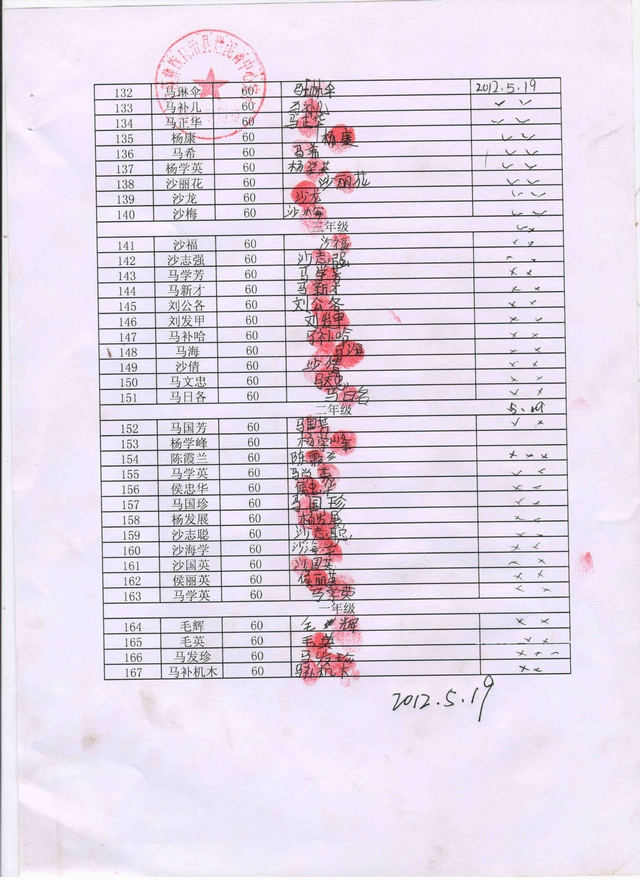 132 马琳伞 60 马琳伞 2012.5.19
133 马补儿 60 马补儿
134 马正华 60 马正华
135 杨康 60 杨康
136 马希 60 马希
137 杨学英 60 杨学英
138 沙丽花 60 沙丽花
139 沙龙 60 沙龙
140 沙梅 60 沙梅
三年级
141 沙福 60 沙福
142 沙志强 60 沙志强
143 马学芳 60 马学芳
144 马新才 60 马新才
145 刘公各 60 刘公各
146 刘发甲 60 刘发甲
147 马补哈 60 马补哈
148 马海 60 马海
149 沙倩 60 沙倩
150 马文忠 60 马文忠
151 马日各 60 马日各
二年级 5.19
152 马国芳 60 马国芳
153 杨学峰 60 杨学峰
154 陈霞兰 60 陈霞兰
155 马学英 60
156 侯忠华 60 侯忠华
157 马国珍 60 马国珍
158 杨发展 60 杨发展
159 沙志聪 60 沙志聪
160 沙海学 60 沙海学
161 沙国英 60 沙国英
162 侯丽英 60 侯丽英
163 马学英 60 马学英
一年级
164 毛辉 60 毛辉
165 毛英 60 毛英
166 马发珍 60 马发珍
167 马补机木 60 马补机木
2012.5.19